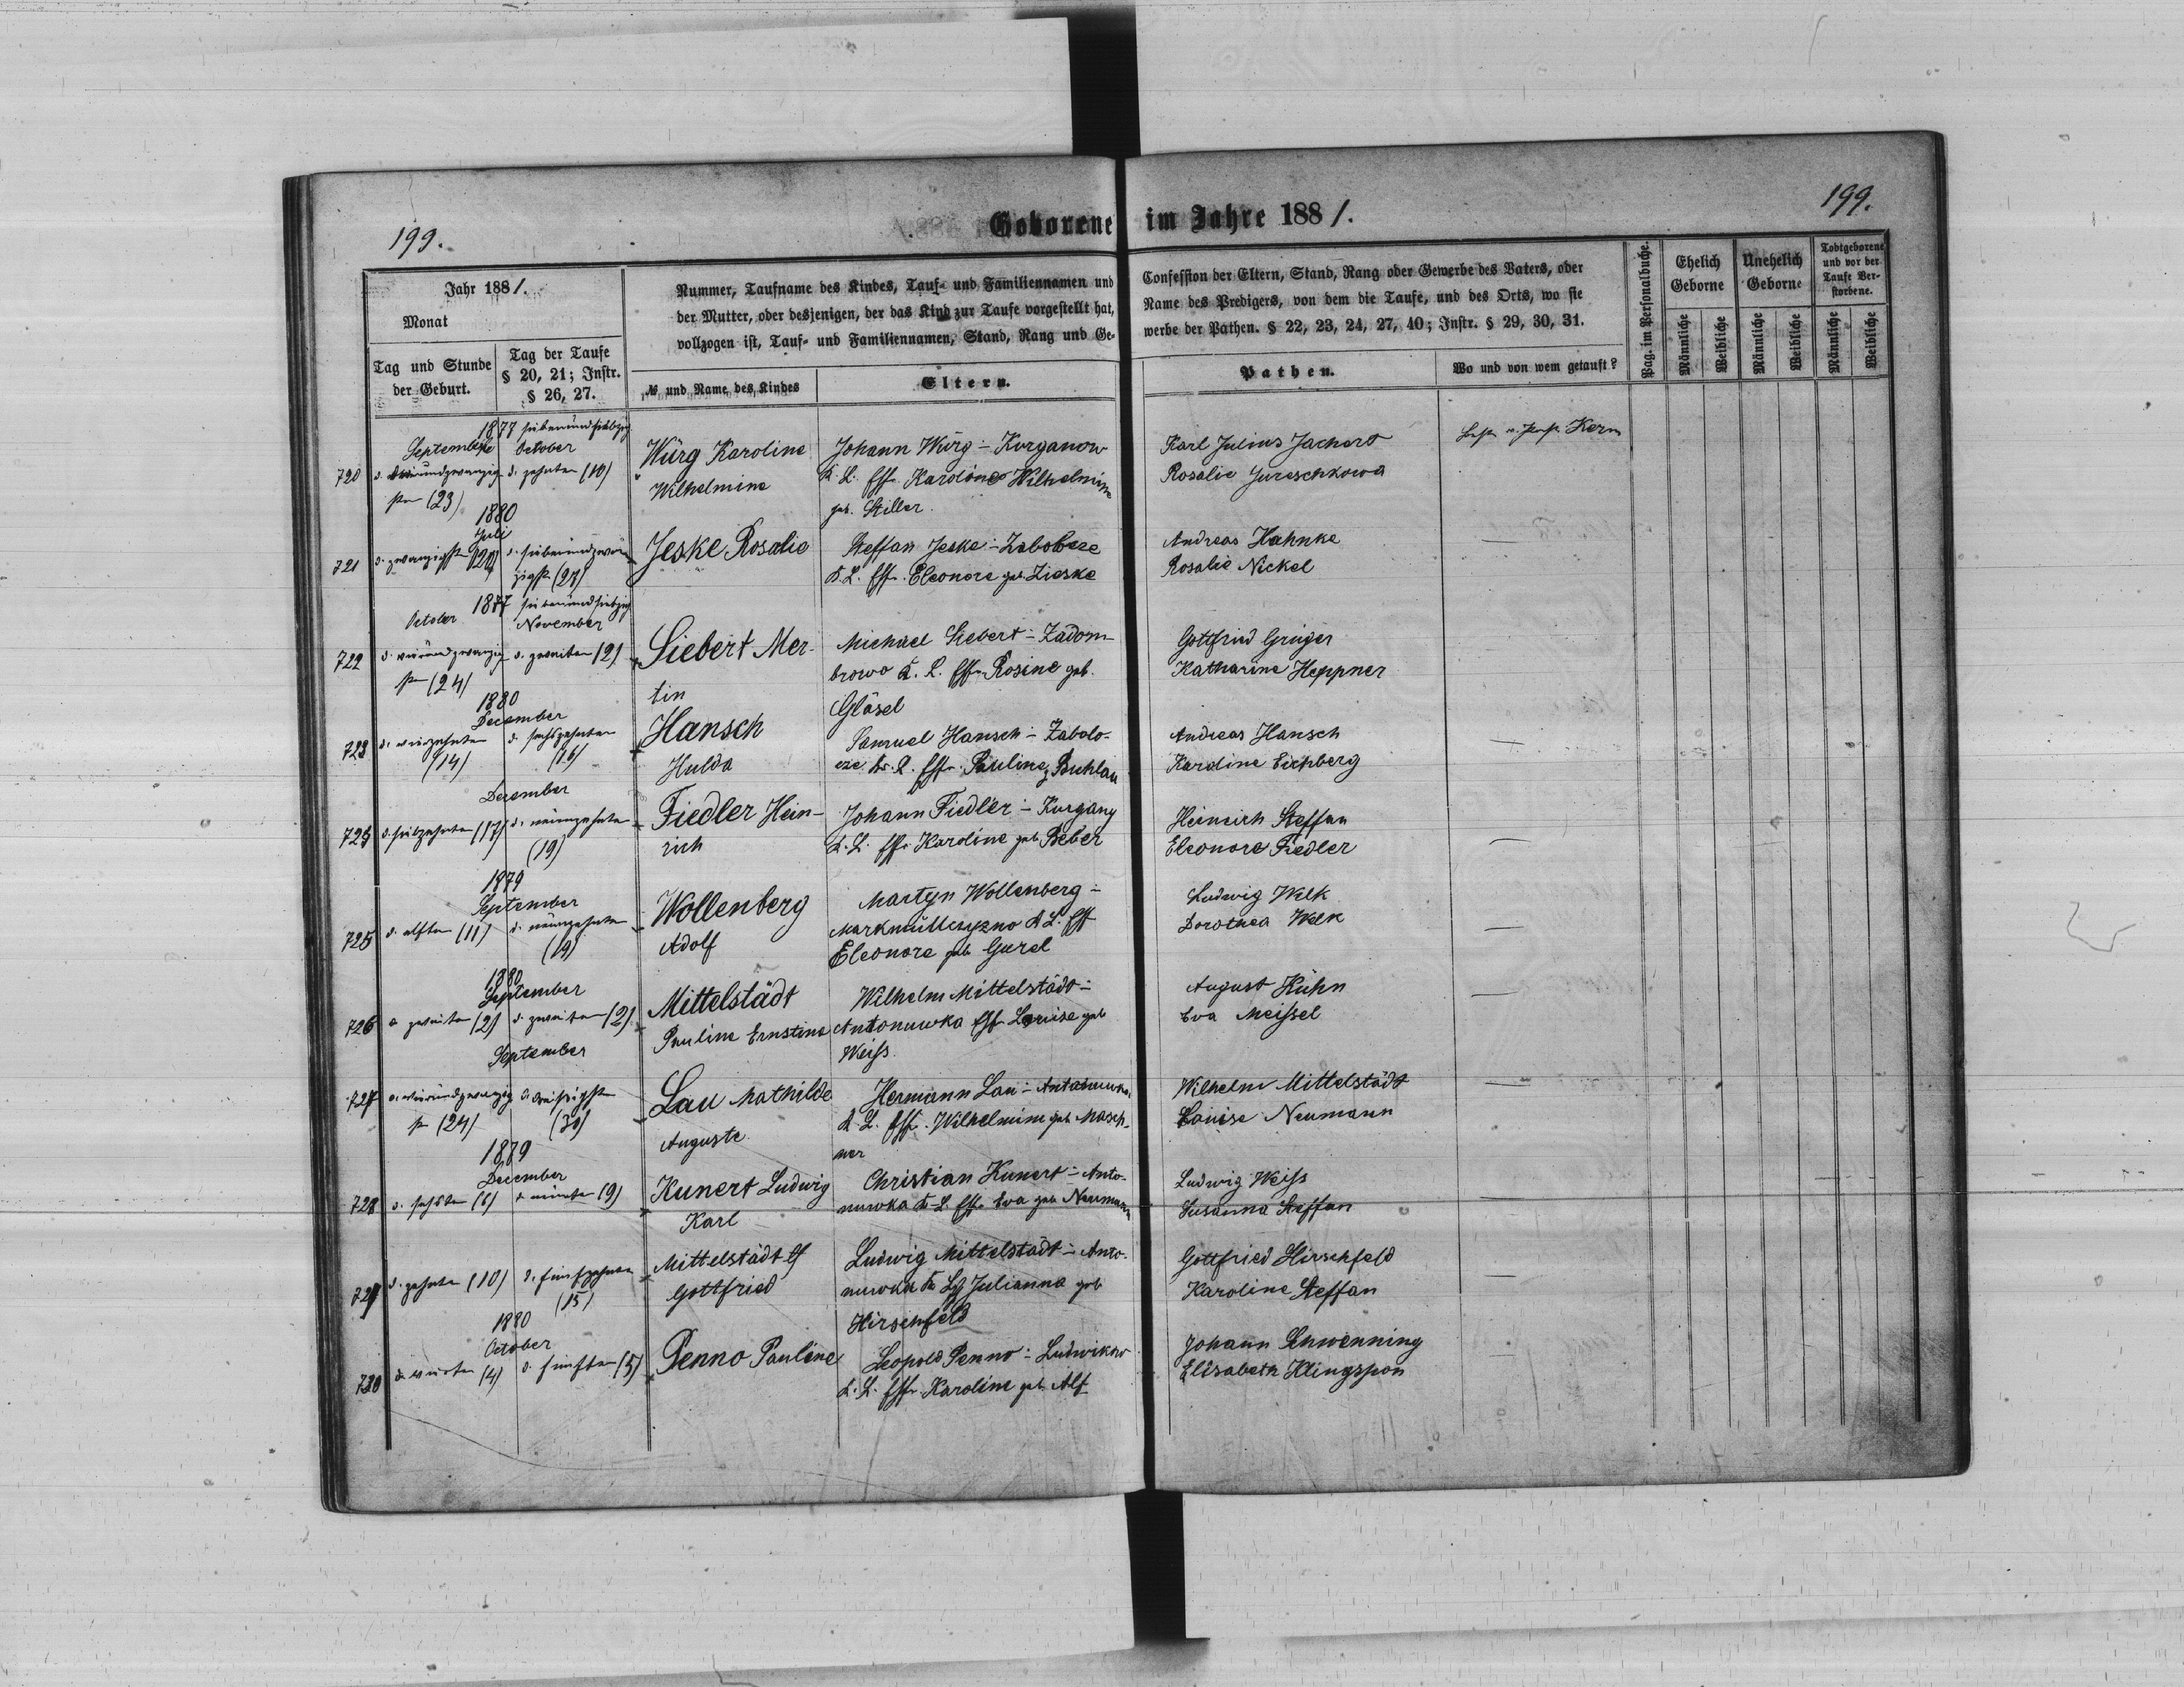 199.
Geborene im Jahre 1881.
199.
Jahr 1881.
Monat
Tag und Stunde
der Geburt.
Tag der Taufe
§ 20, 21; Instr.
§ 26, 27.
Nummer, Taufname des Kindes, Tauf- und Familiennamen und
der Mutter, oder desjenigen, der das Kind zur Taufe vorgestellt hat,
vollzogen ist, Tauf- und Familiennamen, Stand, Rang und Ge-
№ und Name des Kindes
Eltern.
Confession der Eltern, Stand, Rang oder Gewerbe des Vaters, oder
Name des Predigers, von dem die Taufe, und des Orts, wo sie
werbe der Pathen. § 22, 23, 24, 27, 40; Instr. § 29, 30, 31.
Pathen.
Wo und von wem getauft?
Pag. im Personalbuche.
Ehelich
Geborne
Unehelich
Geborne
Todtgeborene
und vor der
Taufe Ver-
storbene.
Männliche
Weibliche
Männliche
Weibliche
Männliche
Weibliche
1877 siebenundsiebzig
September October
720 d. dreiundzwanzig d. zehnten (10)
ste (23)
Würg Karoline
Wilhelmine
Johann Würg - Kurganow
K. L. Eff. Karoline Wilhelmine
geb. Stiller
Karl Julius Jachert
Rosalie Jureschkowa
Kern
1880
Juli
721 d. zwanzigste (20) d. siebenundzwan
zigste (27)
Jeske Rosalie
Steffan Jeske - Zabolocze
K. L. Eff. Eleonore geb. Zieske
Andreas Hahnke
Rosalie Nickel
October 1877 siebenundsiebzig
November
722 d. vierundzwanzig d. zweiten (2)
ste (24)
Siebert Mer-
tin
Michael Siebert - Zadom-
browo K. L. Eff. Rosine geb.
Gläsel
Gottfried Grüger
Katharine Heppner
1880
December
723 d. vierzehnten d. sechszehnten
(14) (16)
Hansch
Hulda
Samuel Hansch - Zabolo-
cze K. L. Eff. Pauline g. Buhlau
Andreas Hansch
Karoline Eichberg
December
724 d. siebzehnten (17) d. neunzehnten
(19)
Fiedler Hein-
rich
Johann Fiedler - Kurgany
K. L. Eff. Karoline geb. Beber
Heinrich Steffan
Eleonore Fiedler
1879
September
725 d. elften (11) d. neunzehnten
(19)
Wollenberg
Adolf
Martyn Wollenberg -
K. L. Eff
Eleonore geb. Gurel
Ludwig Welk
Dorothea Welk
1880
September
726 d. zweiten (2) d. zweiten (2)
Mittelstädt
Pauline Ernstine
Wilhelm Mittelstädt -
Antonuwka Eff. Louise geb
Weiss.
August Kühn
Eva Meissel
September
727 d. vierundzwanzig d. dreissigste
st (24) (30)
Lau Mathilde
Auguste
Hermann Lau - Antonuwka
K. L. Eff. Wilhelmine geb. Masch-
ner
Wilhelm Mittelstädt
Louise Neumann
1879
December
728 d. sechsten (6) d. neunten (9)
Kunert Ludwig
Karl
Christian Kunert - Anto-
nuwka K. L. Eff. Eva geb Neumann
Ludwig Weiss
Susanna Steffan
729 d. zehnten (10) d. fünfzehnten
(15)
Mittelstädt
Gottfried
Ludwig Mittelstädt - Anto-
nuwka Julianna geb
Hirschfeld
Gottfried Hirschfeld
Karoline Steffan
1880
October
730 d. vierten (4) d. fünften (5)
Penno Pauline
Leopold Penno - Ludwikow
K. L. Eff. Karoline geb. Alf
Johann Schwenning
Elisabeth Klingspon